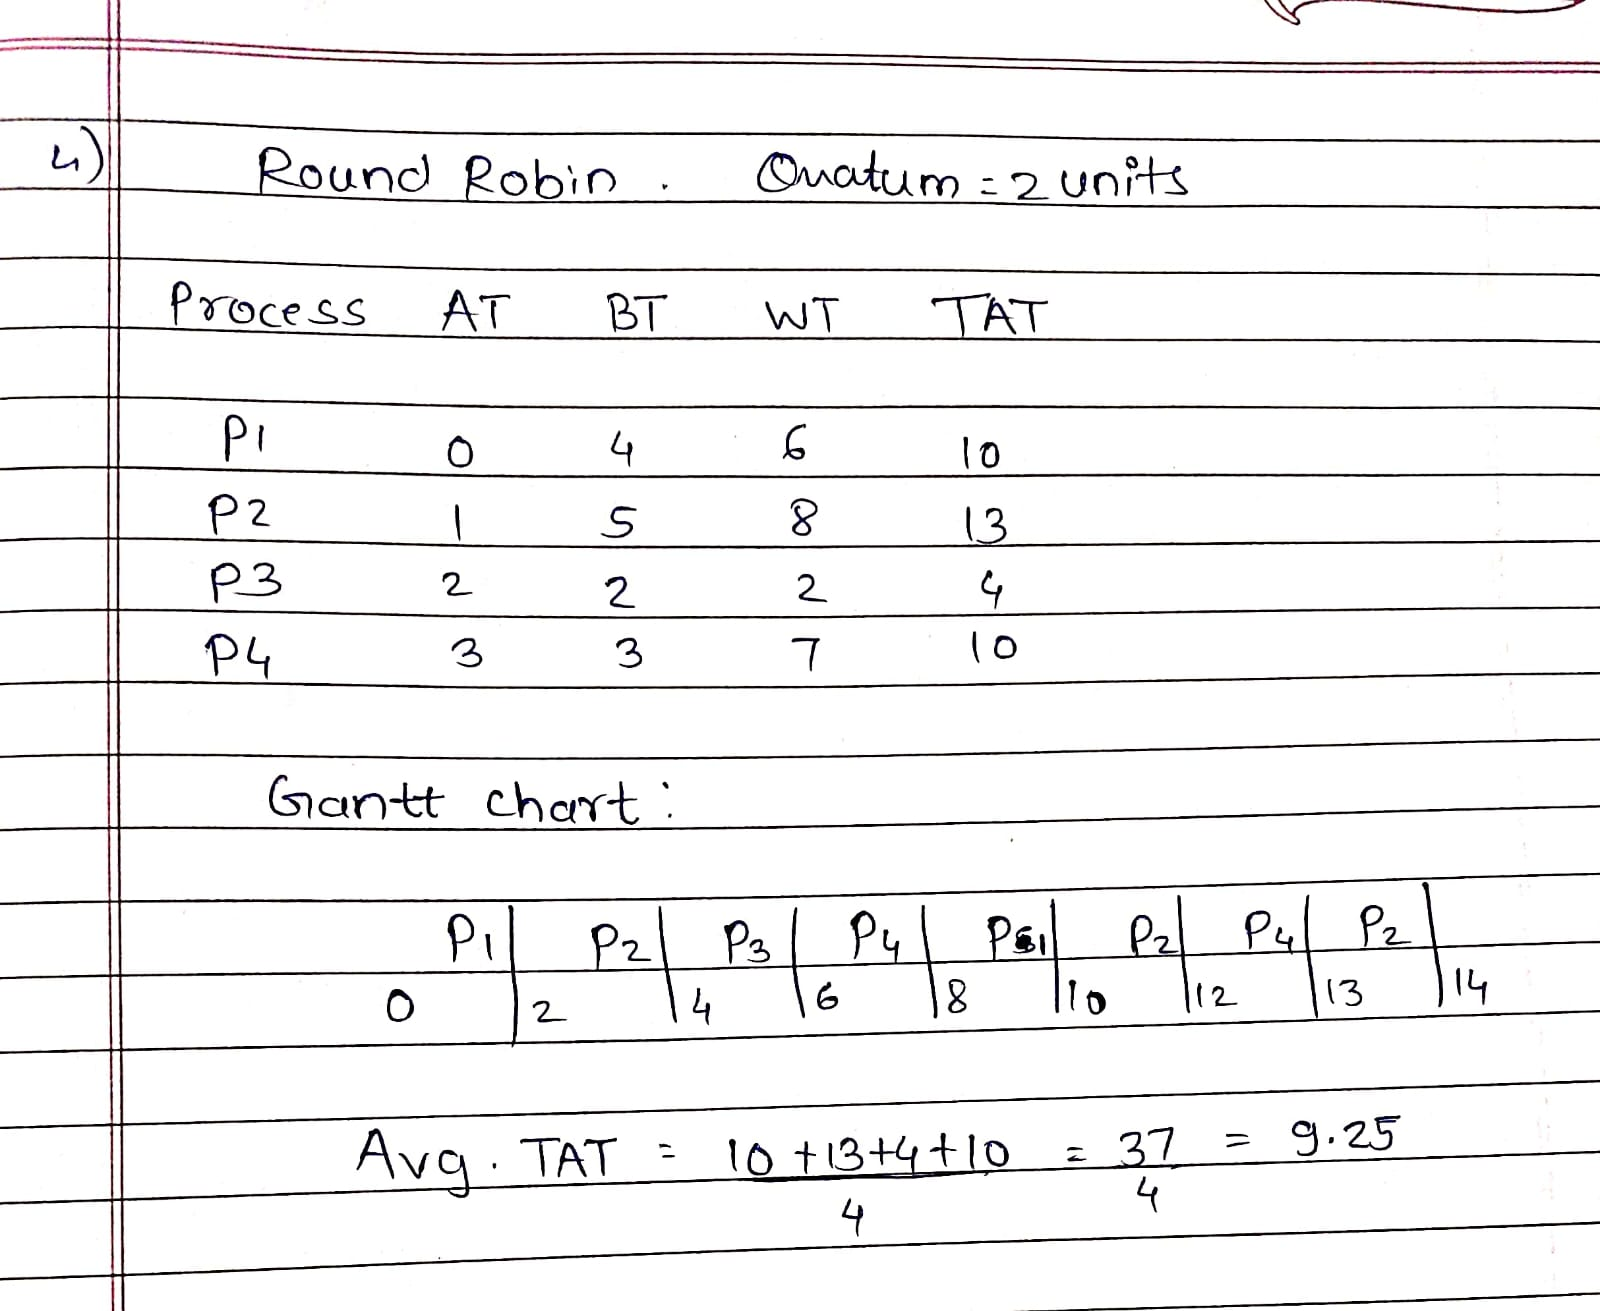 4) Round Robin . Quatum = 2 units
Process AT BT WT TAT
P1 0 4 6 10
P2 1 5 8 13
P3 2 2 2 4
P4 3 3 7 10
Gantt chart :
P1 | P2 | P3 | P4 | P1 | P2 | P4 | P2 |
0 2 4 6 8 10 12 13 14
Avg. TAT = 10+13+4+10 = 37 = 9.25
4 4